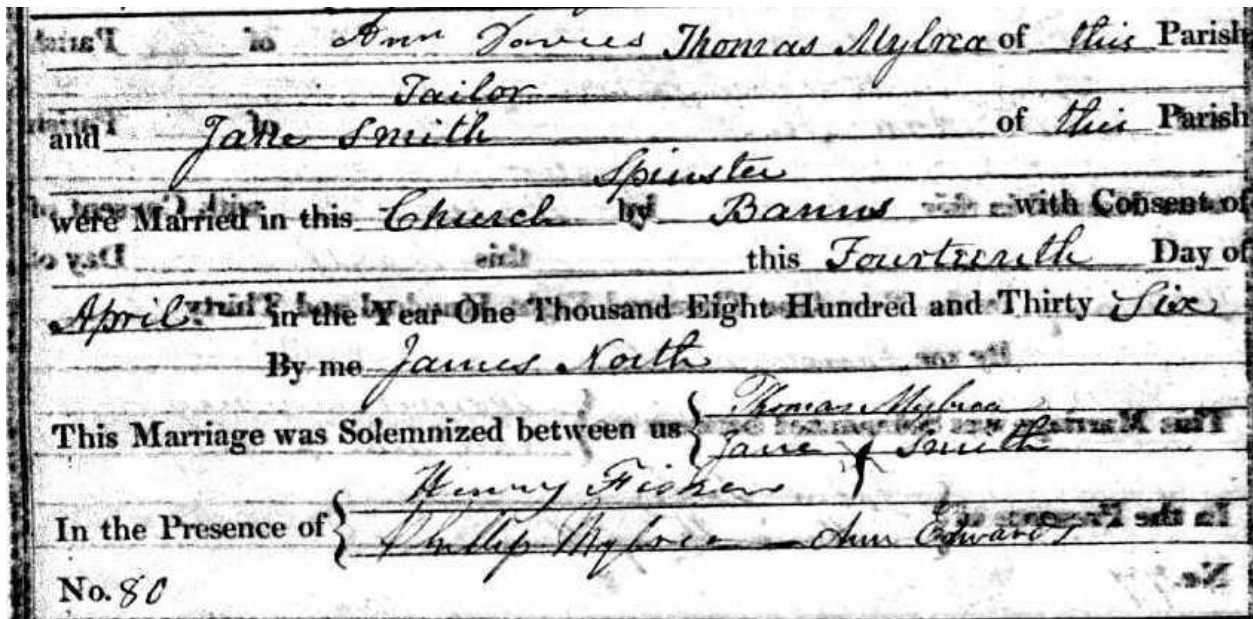 Ann Davies Thomas Mylrea of this Parish
Tailor
and Jane Smith of this Parish
Spinster
were Married in this Church by Banns with Consent of
this Fourteenth Day of
April in the Year One Thousand Eight Hundred and Thirty Six
By me James North
Thomas Mylrea
This Marriage was Solemnized between us
Jane Smith
Henry Fisher
In the Presence of
Phillip Mylrea Ann Edwards
No. 80